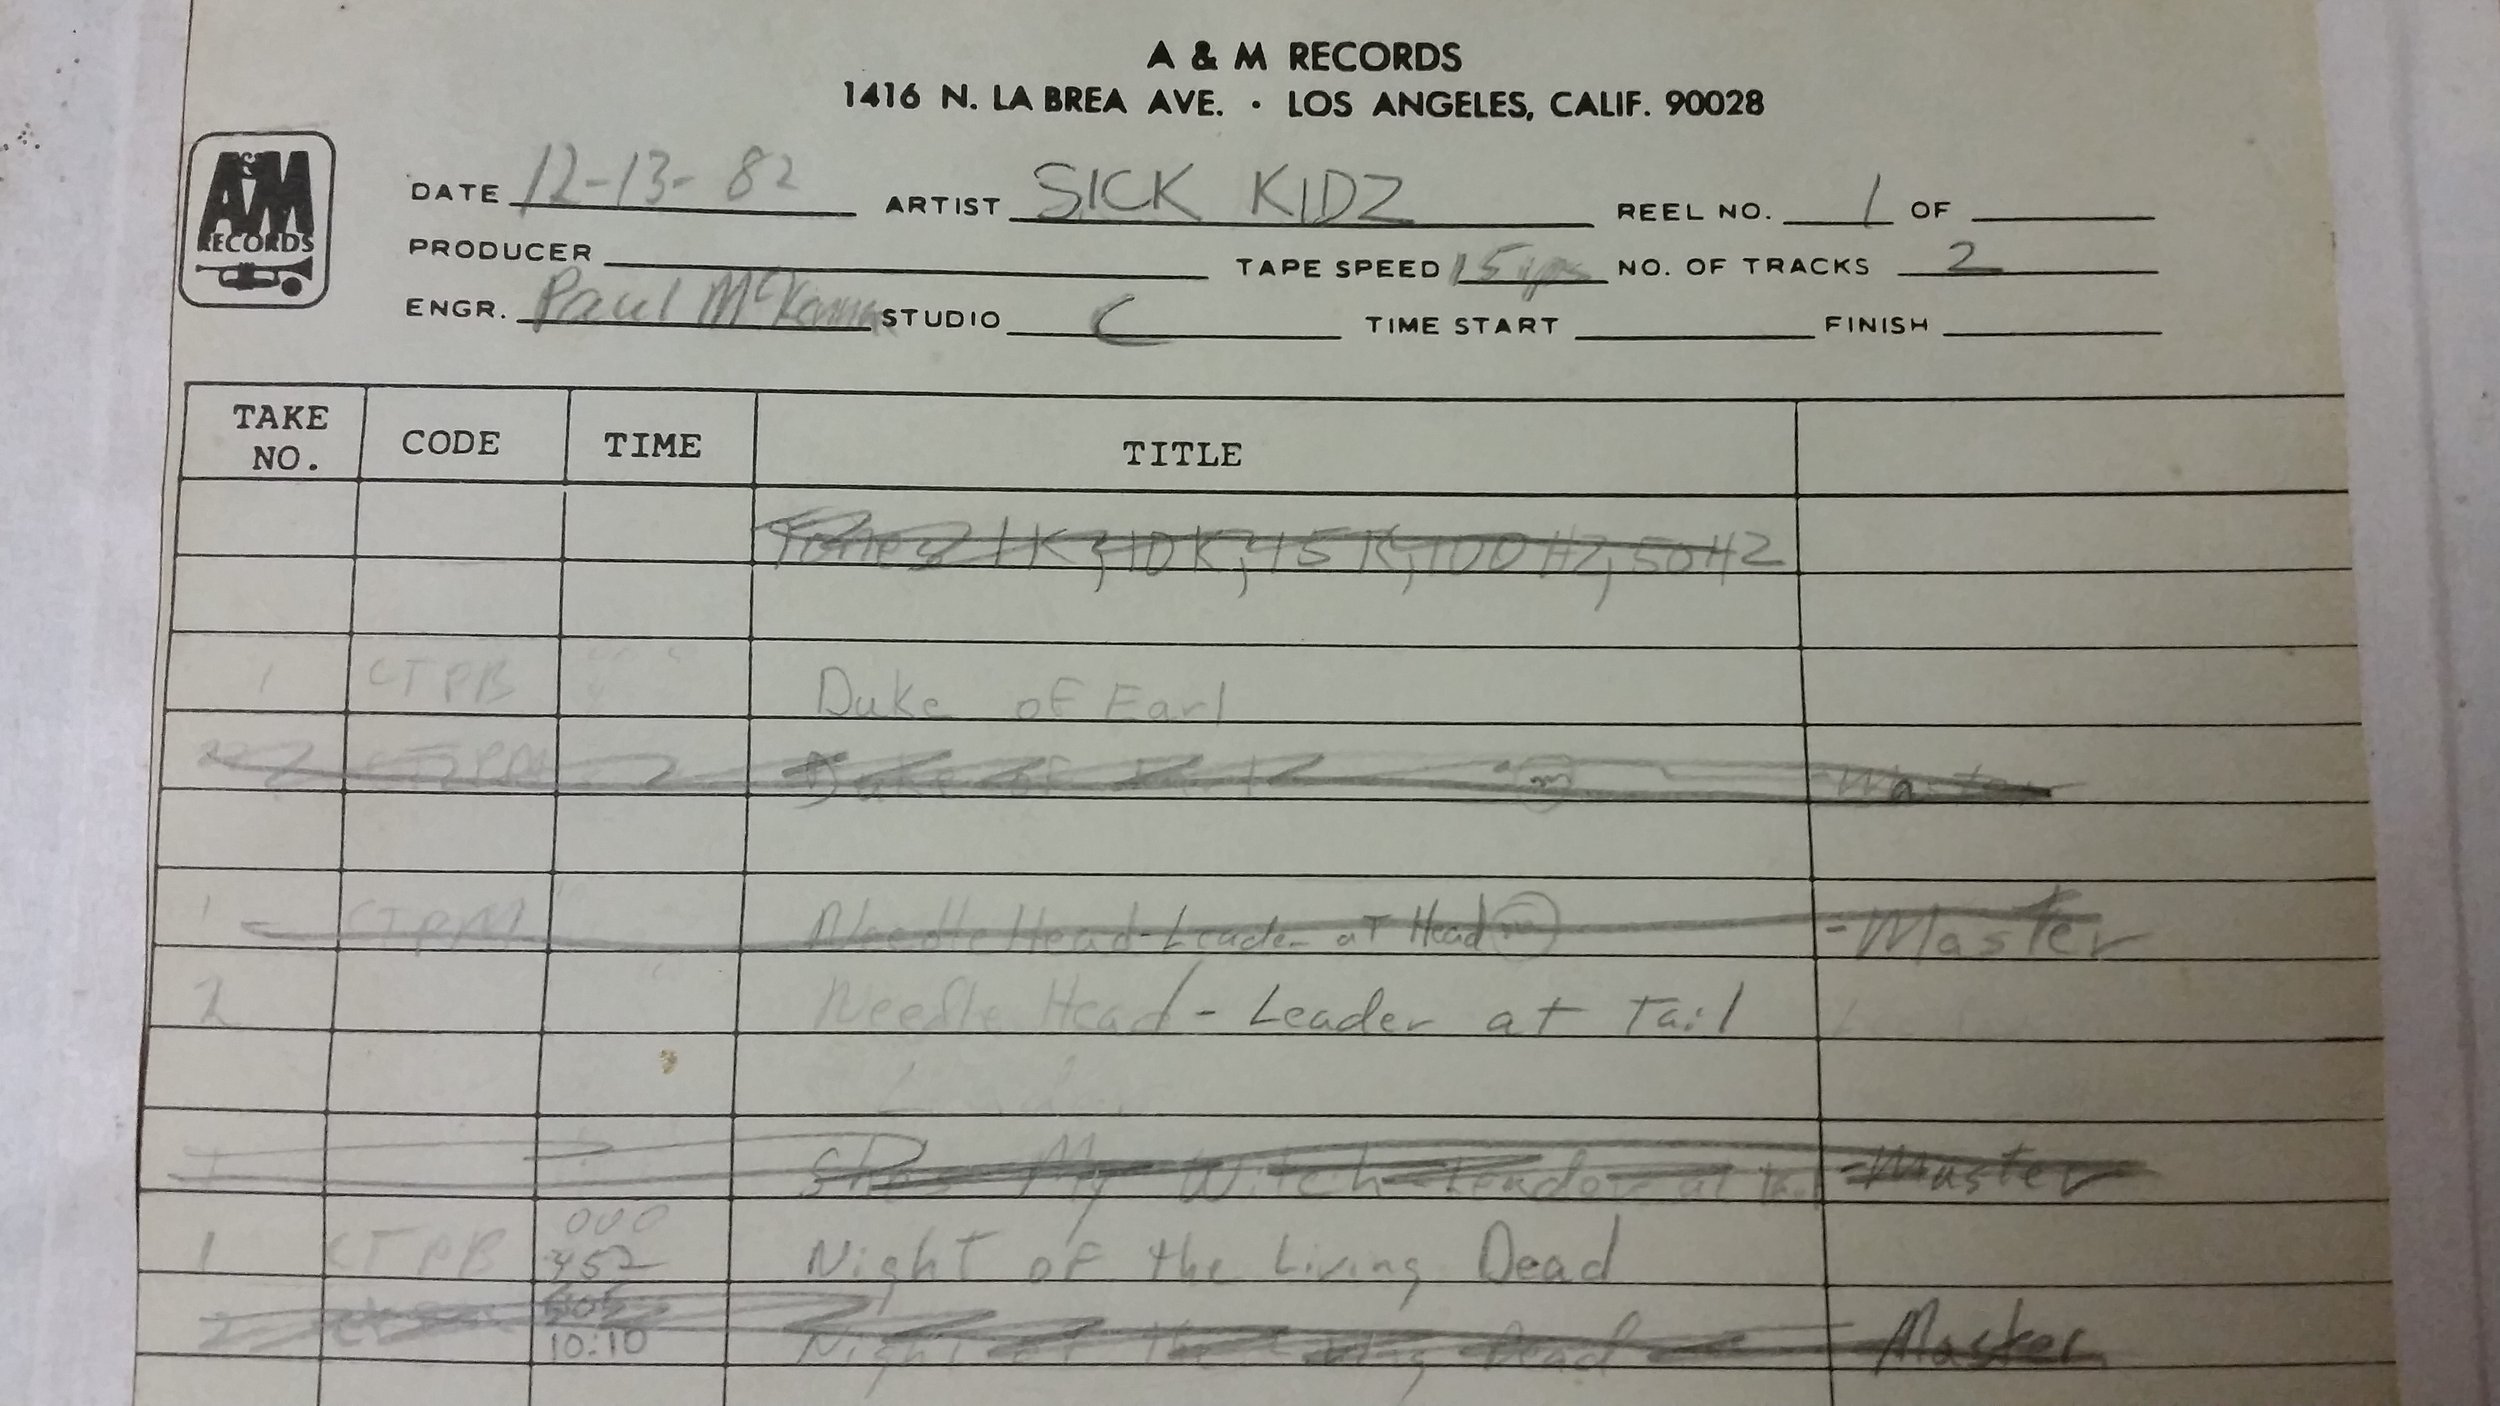 A & M RECORDS
1416 N. LA BREA AVE. • LOS ANGELES, CALIF. 90028
A&M RECORDS
DATE 12-13-82 ARTIST SICK KIDZ REEL NO. 1 OF
PRODUCER TAPE SPEED 15 ips NO. OF TRACKS 2
ENGR. Paul STUDIO C TIME START FINISH
TAKE NO. CODE TIME TITLE
Tones 1K, 10K, 15K, 100HZ, 50HZ
1 CTPB Duke of Earl
2 Duke of Earl m Master
1 CTPM Needle Head - Leader at Head m - Master
2 Needle Head - Leader at Tail
Leader
1 Shes My Witch - Leader at tail - Master
1 CTPB 000 452 Night of the Living Dead
2 10:10 Night of the Living Dead Master